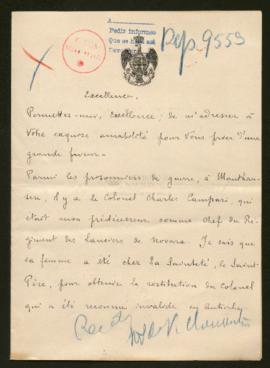 A
Pedir informes
Que se
Dep. 9553
Excellence.
Permettez-moi, Excellence, de m'adresser à
Votre exquise amabilité pour Vous prier d'une
grande faveur.
Parmi les prisonniers de guerre, à Mauthau-
sen, il y a le Colonel Charles Campari, qui
était mon prédécesseur comme chef du Ré-
giment des Lanciers de Novara. Je sais que
sa femme a été chez Sa Sainteté, le Saint-
Père, pour obtenir la restitution du Colonel
qui a été reconnu invalide en Autriche